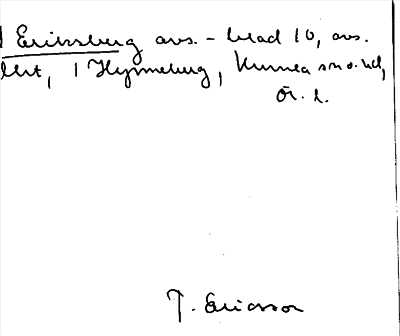 1 Eriksberg avs. - blad 10, avs.
1 Hynneberg, Kumla sn o. hd,
Ör. l.
T. Ericsson